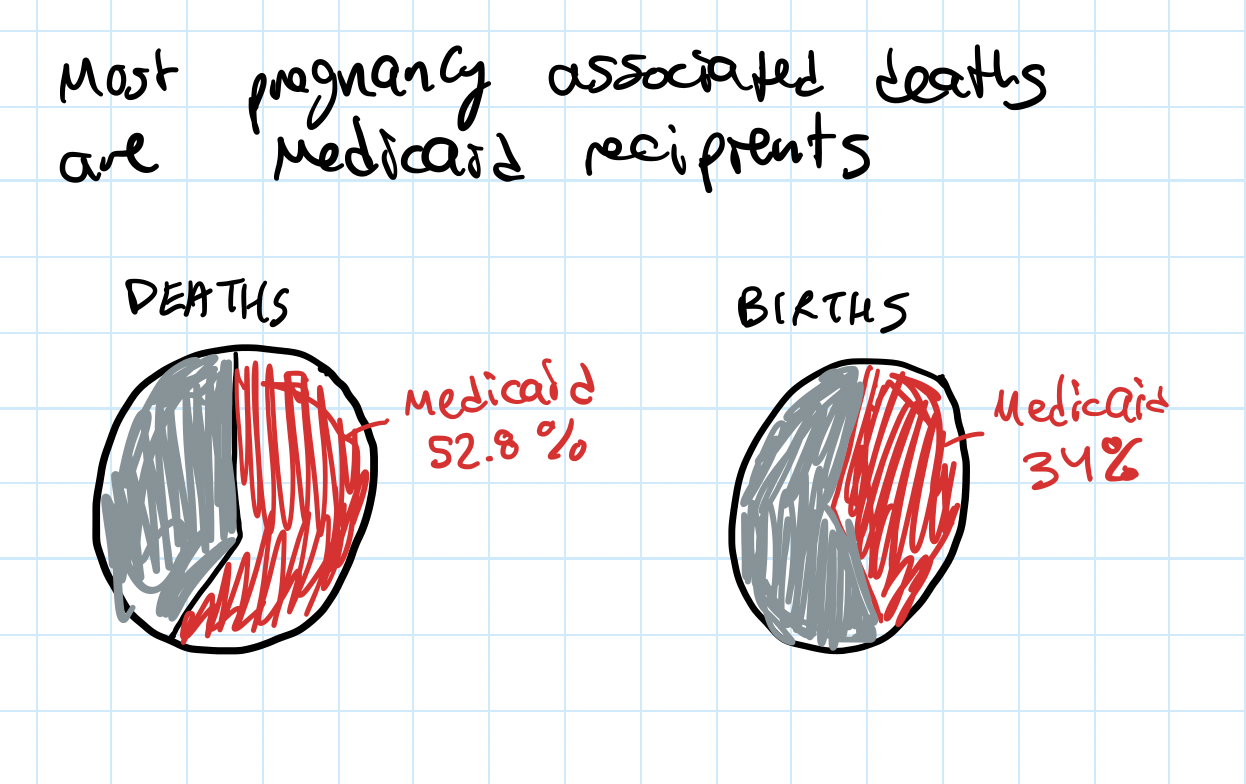 Most pregnancy associated deaths
are Medicaid recipients
DEATHS
BIRTHS
Medicaid
52.8 %
Medicaid
34%